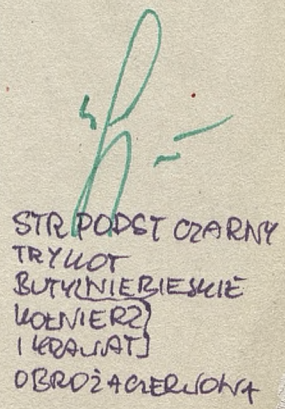 STR PODST CZARNY
TRYKOT
BUTY(NIEBIESKIE
KOŁNIERZ)
I KRAWAT)
OBROŻA CZERWONA